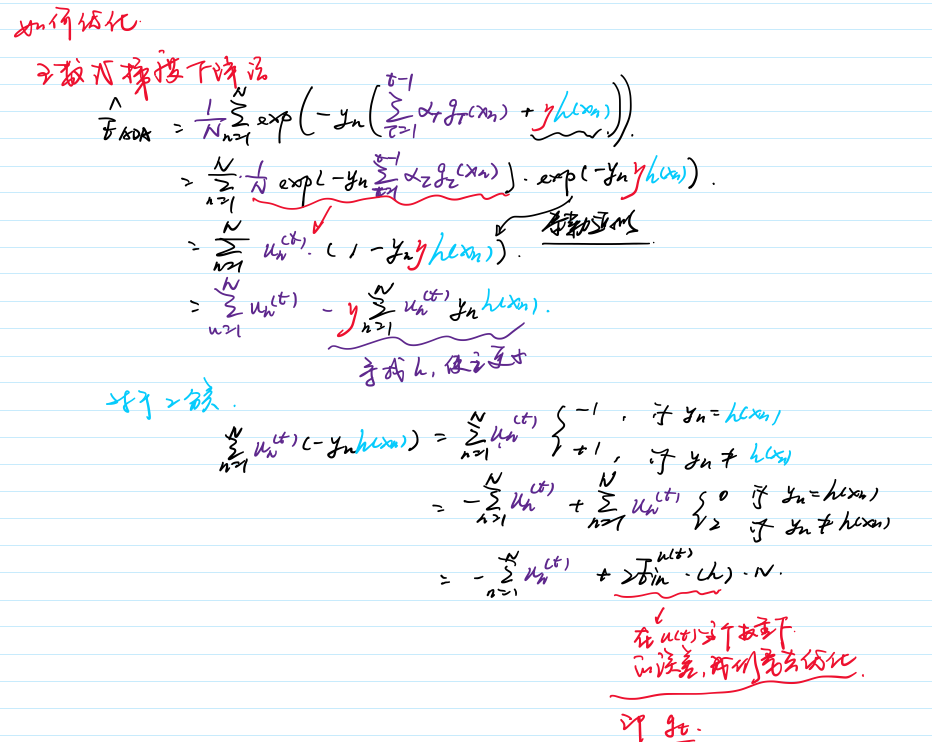 如何优化
函数式梯度下降法
Ê_ADA = 1/N Σ_{n=1}^{N} exp(-y_n(Σ_{τ=1}^{t-1} α_τ g_τ(x_n) + ηh(x_n))).
= Σ_{n=1}^{N} · 1/N exp(-y_n Σ_{τ=1}^{t-1} α_τ g_τ(x_n)) · exp(-y_n ηh(x_n)).
= Σ_{n=1}^{N} u_n^{(t)} · (1 - y_n ηh(x_n)). 泰勒近似
= Σ_{n=1}^{N} u_n^{(t)} - η Σ_{n=1}^{N} u_n^{(t)} y_n h(x_n).
寻找 h, 使之更小
对于二分类.
Σ_{n=1}^{N} u_n^{(t)} (-y_n h(x_n)) = Σ_{n=1}^{N} u_n^{(t)} { -1, if y_n = h(x_n)
+1, if y_n ≠ h(x_n)
= -Σ_{n=1}^{N} u_n^{(t)} + Σ_{n=1}^{N} u_n^{(t)} { 0 if y_n = h(x_n)
2 if y_n ≠ h(x_n)
= -Σ_{n=1}^{N} u_n^{(t)} + 2E_in^{u(t)} · (h) · N.
在 u(t) 这个权重下
的误差, 我们要去优化.
即 g_t.